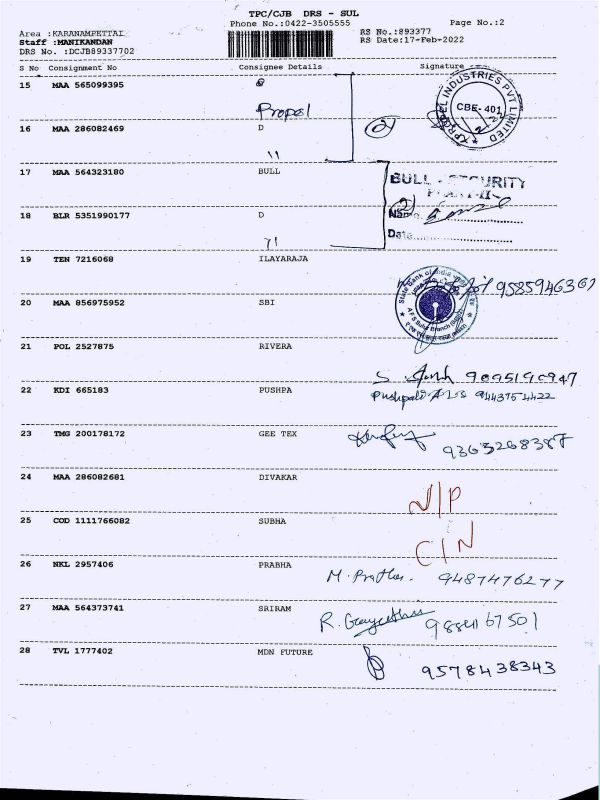 TPC/CJB DRS - SUL
Phone No.:0422-3505555 Page No.:2
Area :KARANAMPETTAI RS No.:893377
Staff :MANIKANDAN RS Date:17-Feb-2022
DRS No. :DCJB89337702
S No Consignment No Consignee Details Signature
15 MAA 565099395
Propel
XPROPEL INDUSTRIES PVT LIMITED
CBE-401
16 MAA 286082469 D
(2)
11
17 MAA 564323180 BULL
BULL SECURITY
18 BLR 5351990177 D
(2)
Name
Date
71
19 TEN 7216068 ILAYARAJA
9585946367
20 MAA 856975952 SBI
State Bank of India
21 POL 2527875 RIVERA
9095190947
22 KDI 665183 PUSHPA
9443754422
23 TMG 200178172 GEE TEX
9363268387
24 MAA 286082681 DIVAKAR
N/P
25 COD 1111766082 SUBHA
C/N
26 NKL 2957406 PRABHA
M. 9487476277
27 MAA 564373741 SRIRAM
R. Gayathri 9884167501
28 TVL 1777402 MDN FUTURE
9578438343